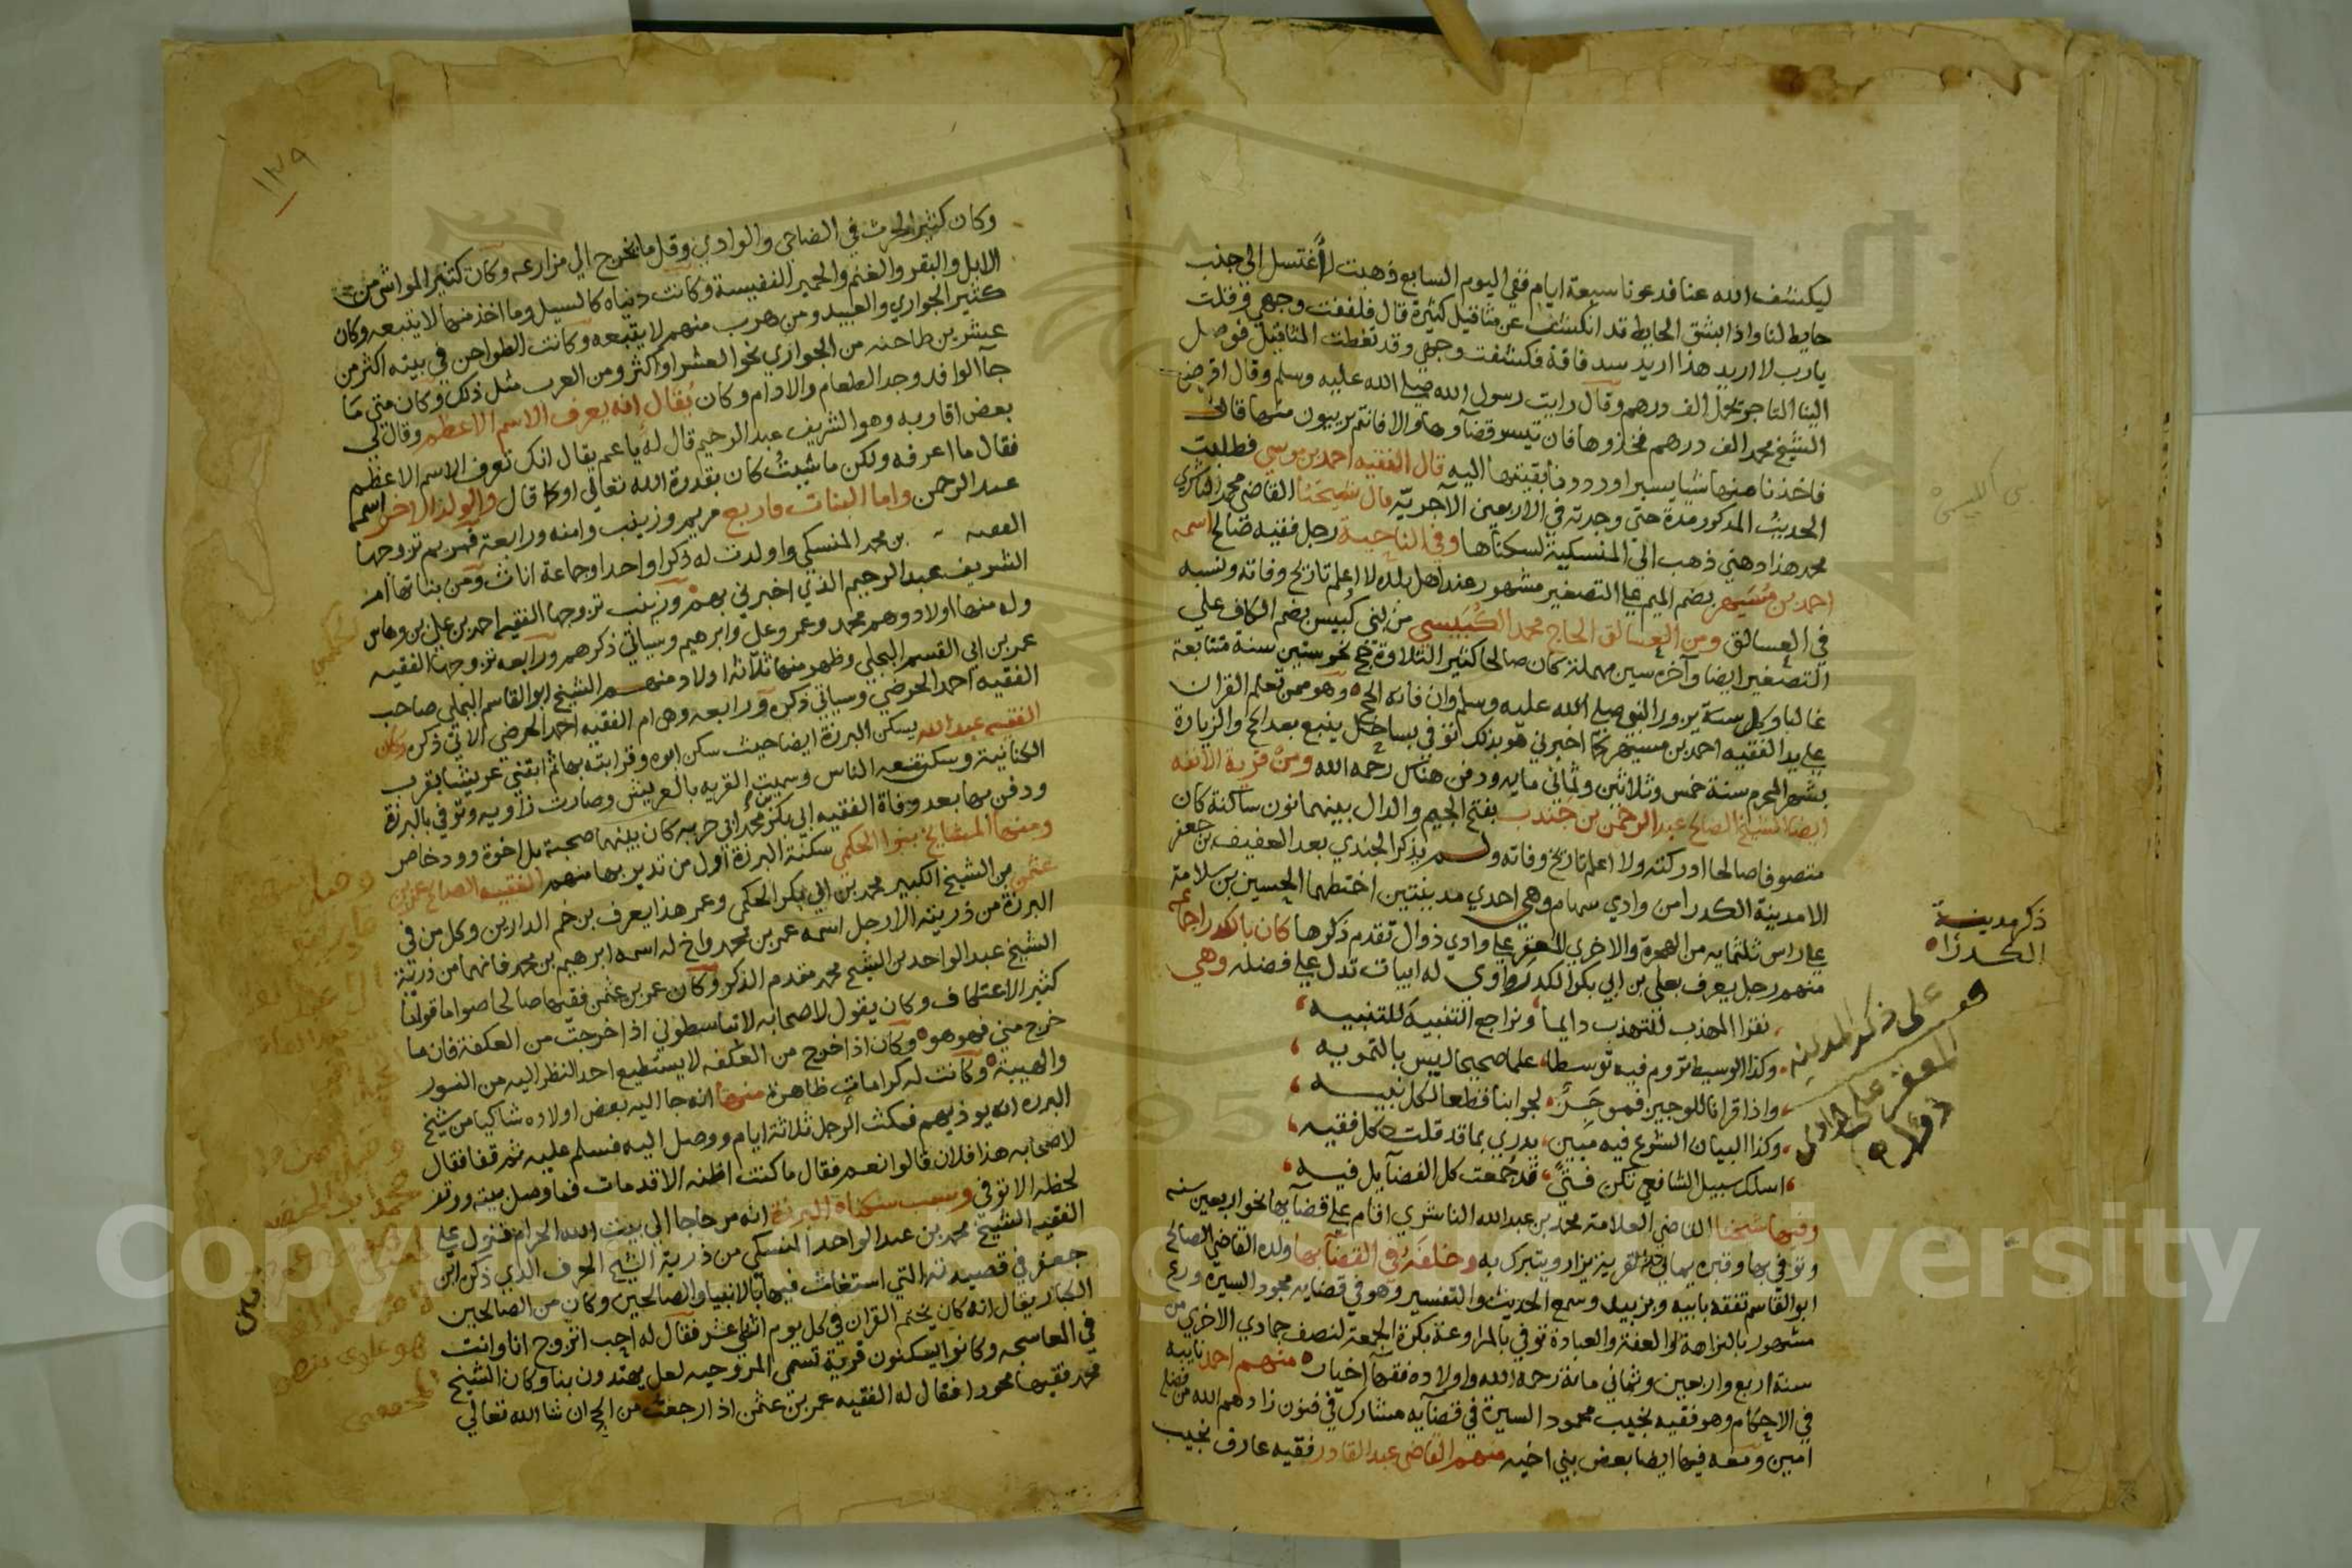 ليكشف الله عنا فدعونا سبعة ايام ففي اليوم السابع ذهبت لأغتسل الي جنب
حايط لنا واذا بشق الحايط قد انكشف عن مثاقيل كثيرة قال فلففت وجهي وقلت
يارب لا اريد هذا اريد سد فاقة فكشفت وجهي وقد تغطت المثاقيل فوصل
الينا التاجر بمحل الف درهم وقال رايت رسول الله صلى الله عليه وسلم وقال اقرض
الشيخ محمد الف درهم فخذوها فان تيسر قضآوها والا فانتم بريبون منها قال
فاخذنا منها شيا يسيرا ورددنا بقيتها اليه قال الفقيه احمد بن موسي فطلبت
الحديث المذكور مدة حتى وجدته في الاربعين الآجرية قال شيخنا القاضي محمد الناشري
محمد هذا دهني ذهب الي المنسكية لسكناها وفي الناحية رجل فقيه صالح اسمه
احمد بن مسيهر بضم الميم علي التصغير مشهور عند اهل بلده لا اعلم تاريخ وفاته ونسبه
في العسالق ومن العسالق الحاج محمد الكبيسي من بني كبيس بضم الكاف علي
التصغير ايضا وآخره سين مهملة كان صالحا كثير التلاوة حج نحو ستين سنة متتابعة
غالبا وكل سنة يزور النبي صلى الله عليه وسلم وان فاته الحج وهو ممن تعلم القران
علي يد الفقيه احمد بن مسيهر كما اخبرني هو بذلك توفي بساحل ينبع بعد الحج والزيارة
بشهر المحرم سنة خمس وثلاثين وثماني مايه ودفن هناك رحمه الله ومن قرية الانفه
ايضا الشيخ الصالح عبد الرحمن بن جندب بفتح الجيم والدال بينهما نون ساكنة كان
متصوفا صالحا ادركته ولا اعلم تاريخ وفاته ولم يذكر الجندي بعد العفيف بن جعفر
الا مدينة الكدرا من وادي سهام وهي احدي مدينتين اختطهما الحسين بن سلامة
علي راس ثلثمايه من الهجرة والاخري المعقر علي وادي ذوال تقدم ذكرها كان بالكدرا جماعة
منهم رجل يعرف بعلي بن ابي بكر الكدراوي له ابيات تدل علي فضله وهي
نقرا المهذب للتهذب دايما ونراجع التنبيه للتنبيه
وكذا الوسيط نروم فيه توسطا علما صحيحا ليس بالتمويه
واذا قرانا للوجيز فموجز لجوابنا قطعا لكل نبيه
وكذا البيان الشرع فيه مبين يدري بما قد قلت كل فقيه
اسلك سبيل الشافعي تكن فتي قد جمعت كل الفضآيل فيه
ومنها شيخنا القاضي العلامة محمد بن عبد الله الناشري اقام علي قضآيها نحوا ربعين سنه
وتوفي بها وقبره بها في القرية يزار ويتبرك به وخلفه في القضآ بها ولده القاضي الصالح
ابو القاسم تفقه بابيه وبزبيد وسمع الحديث والتفسير وهو في قضايه محمود السيرة ورع
مشهور بالنزاهة والعفة والعبادة توفي بالمراوعة بكرة الجمعة لنصف جمادي الاخري من
سنة اربع واربعين وثماني مائة رحمه الله واولاده فقهآ اخيار منهم احمد نايبه
في الاحكام وهو فقيه نجيب محمود السيرة في قضآيه مشارك في فنون زادهم الله من فضله
امين ومعه فيها ايضا بعض بني اخيه منهم القاضي عبد القادر فقيه عارف نجيب
ذكر مدينة
الكدرا
قف على ذكر المدينة
المعقر على وادي
ذوال
١٢٩
وكان كثير الحرث في الضاحي والوادي وقل ما يخرج الي مزارعه وكان كثير المواشي من
الابل والبقر والغنم والحمير النفيسة وكانت دنياه كالسيل وما اخذ منها لا يتبعه وكان
كثير الجواري والعبيد ومن هرب منهم لا يتبعه وكانت الطواحن في بيته اكثر من
عشرين طاحنه من الجواري نحو العشر او اكثر ومن العرب مثل ذلك وكان متى ما
جآ الوافد وجد الطعام والادام وكان يقال انه يعرف الاسم الاعظم وقال لي
بعض اقاربه وهو الشريف عبد الرحيم قال له يا عم يقال انك تعرف الاسم الاعظم
فقال ما اعرفه ولكن ما شيت كان بقدرة الله تعالي او كما قال والولد الاخر اسمه
عبد الرحمن واما البنات فاربع مريم وزينب وامنه ورابعة فمريم تزوجها
الفقيه بن محمد المنسكي واولدت له ذكرا واحدا وجماعة اناث ومن بناتها ام
الشريف عبد الرحيم الذي اخبرني بهم وزينب تزوجها الفقيه احمد بن علي بن وهاس
وله منها اولاد وهم محمد وعمر وعلي وابرهيم وسياتي ذكرهم ورابعه تزوجها الفقيه
عمر بن ابي القسم البجلي وظهر منها ثلاثة اولاد منهم الشيخ ابو القاسم البجلي صاحب
الفقيه احمد الحرضي وسياتي ذكره ورابعه وهي ام الفقيه احمد الحرضي الاتي ذكره وكان
الفقيه عبد الله يسكن البرزة ايضا حيث سكن ابوه وقرابته بها ثم ابتني عريشا بقرب
الكتانية وسكن معه الناس وسميت القريه بالعريش وصارت زاويه وتوفي بالبرزة
ودفن بها بعد وفاة الفقيه ابي بكر بن محمد ابي حربه كان بينهما صحبة بل اخوة وود خاص
ومنها المشايخ بنوا الحكمي سكنة البرزة اول من تدير بها منهم الفقيه الصالح عمر بن
عثمن من الشيخ الكبير محمد بن ابي بكر الحكمي وعمر هذا يعرف بن خم الدارين وكل من في
البرزة من ذريته الا رجل اسمه عمر بن محمد واخ له اسمه ابرهيم بن محمد فانهما من ذرية
الشيخ عبد الواحد بن الشيخ محمد متقدم الذكر وكان عمر بن عثمن فقيها صالحا صواما قواما
كثير الاعتكاف وكان يقول لاصحابه لا تباسطوني اذا خرجت من العكفة فان ما
خرج مني فهو هو وكان اذا خرج من العكفه لا يستطيع احد النظر اليه من النور
والهيبة وكانت له كرامات ظاهرة منها انه جا اليه بعض اولاده شاكيا من شيخ
البرزه انه يوذيهم فمكث الرجل ثلاثة ايام ووصل اليه فسلم عليه ثم قفا فقال
لاصحابه هذا فلان قالوا نعم فقال ما كنت اظنه الا قد مات فما وصل بيته ووقف
لحظه الا توفي وسبب سكناه البرزة انه مر حاجا الي بيت الله الحرام فنزل علي
الفقيه الشيخ محمد بن عبد الواحد المنسكي من ذرية الشيخ الحرف الذي ذكره ابن
جعفر في قصيدته التي استغاث فيها بالانبيا والصالحين وكان من الصالحين
الكبار يقال انه كان يختم القران في كل يوم اثني عشر فقال له احب اتزوج انا وانت
في المعاسحه وكانوا يسكنون قرية تسمي المروحيه لعل يهتدون بنا وكان الشيخ
محمد فقيها مجودا فقال له الفقيه عمر بن عثمن اذا رجعت من الحج ان شا الله تعالي